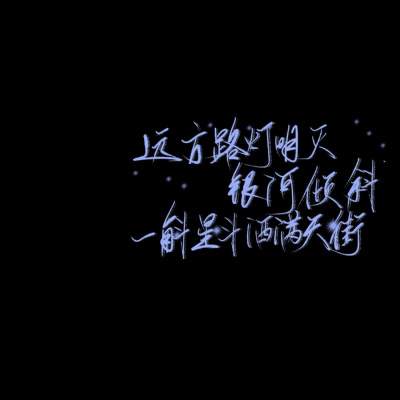 远方路灯明灭
银河倾斜
一斛星斗洒满天街